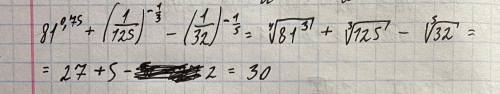 81^0,75 + (1/125)^-1/3 - (1/32)^-1/5 = ⁴√81³ + ³√125 - ⁵√32 =
= 27 + 5 - 2 = 30